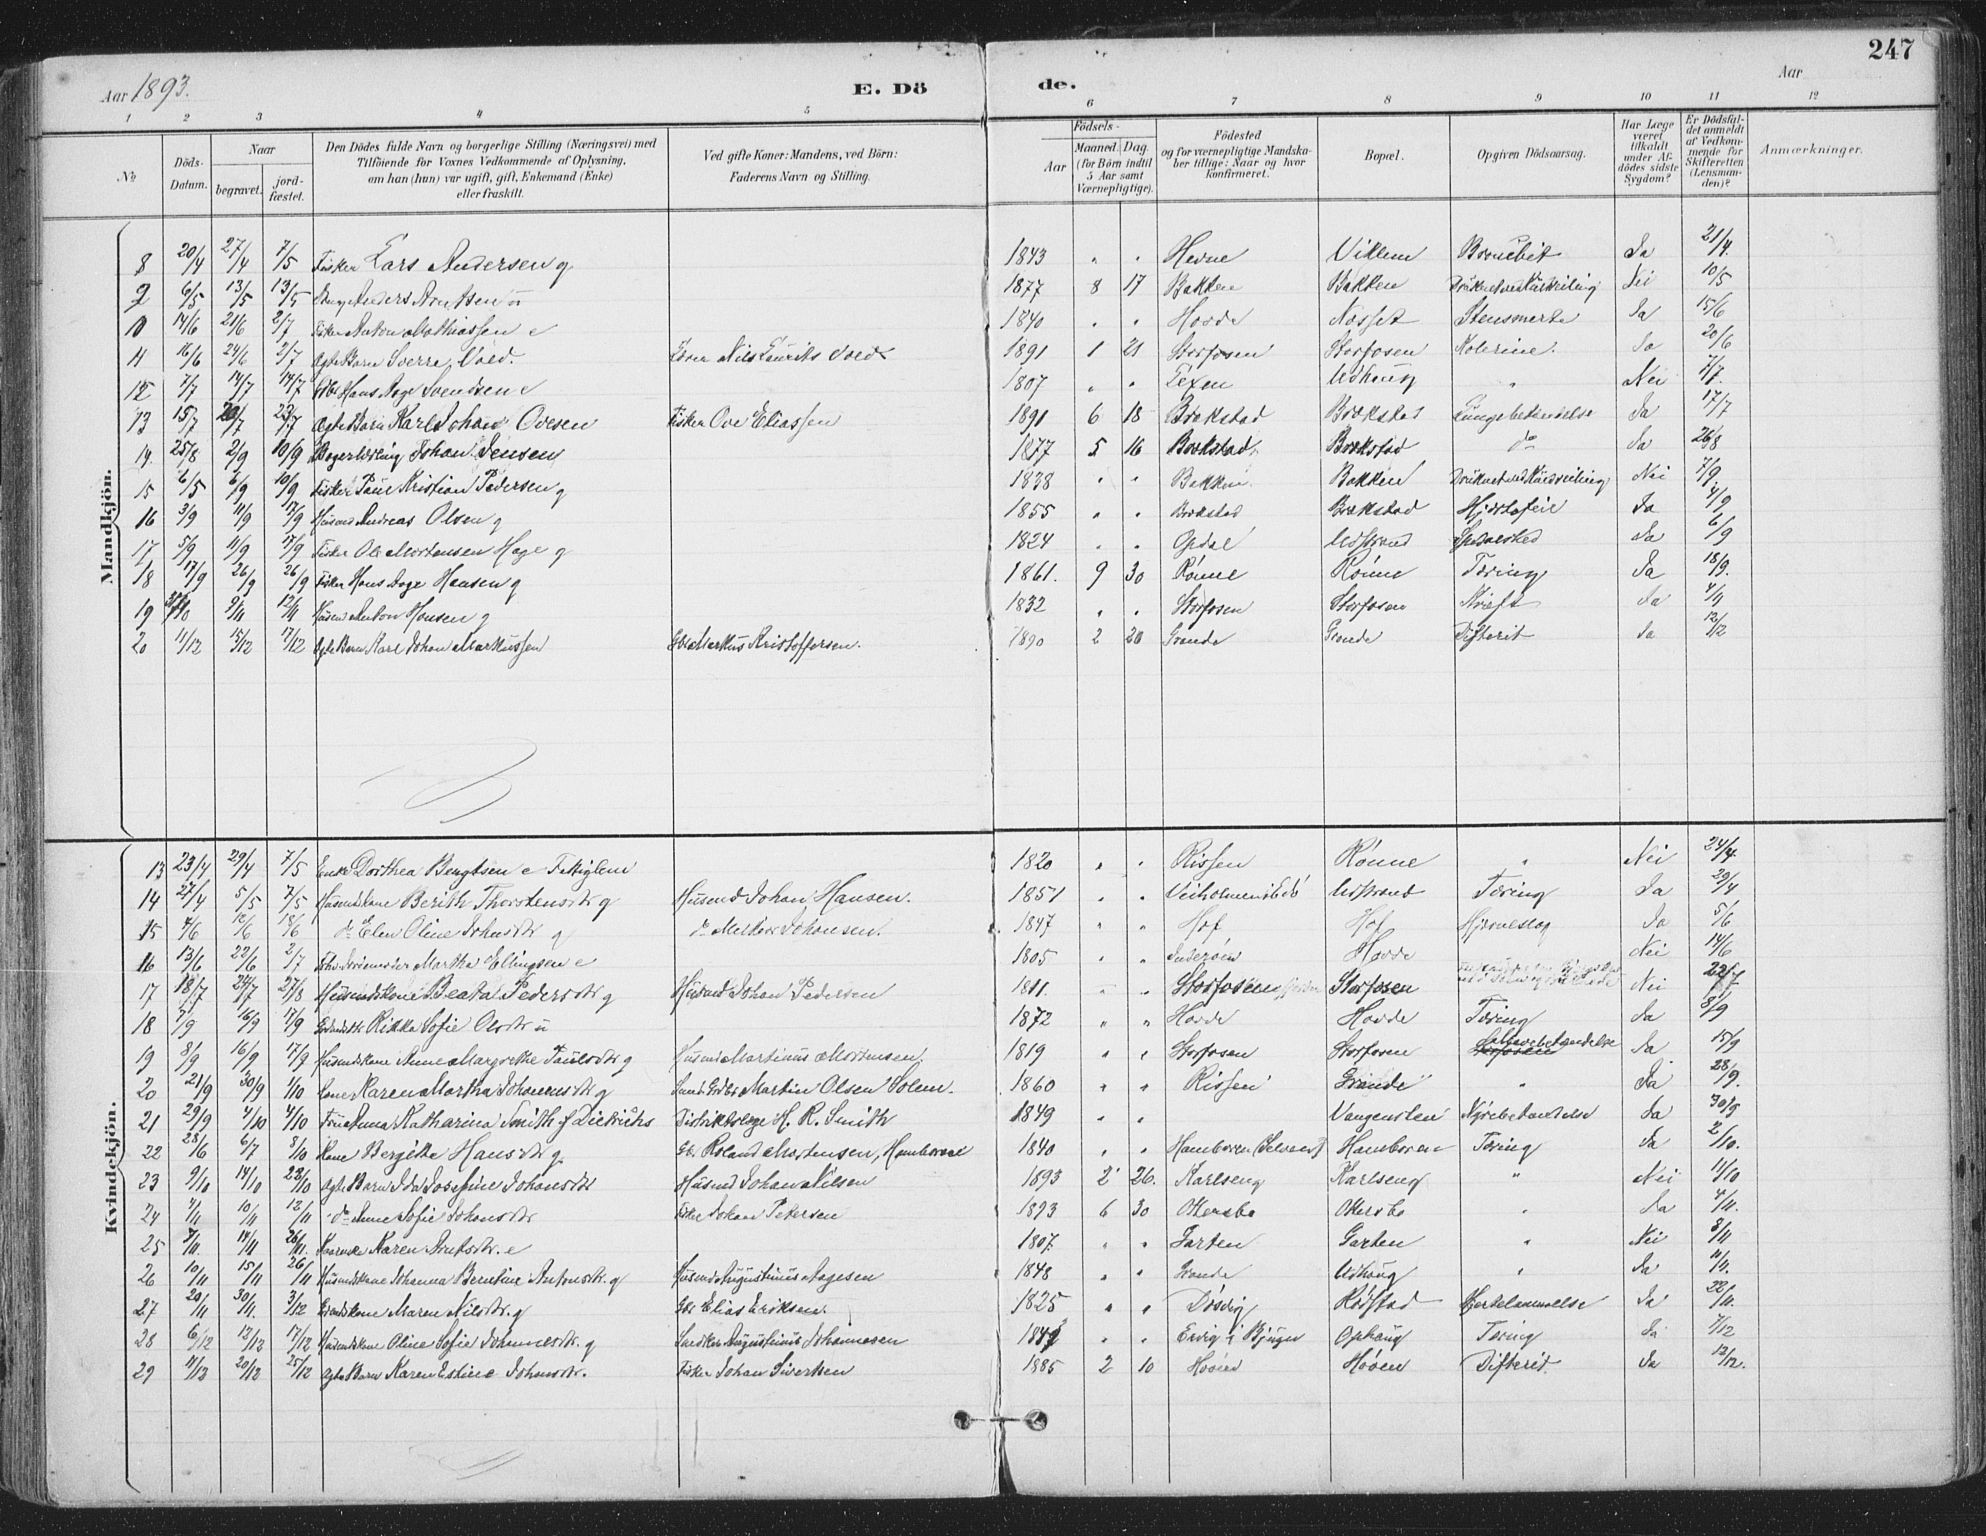 247
Aar 1893. E. Dö de. Aar
1 2 3 4 5 6 7 8 9 10 11 12
№ Döds-Datum. Naar begravet. jord-fæstet. Den Dödes fulde Navn og borgerlige Stilling (Næringsvei) med Tilföiende for Voxnes Vedkommende af Oplysning, om han (hun) var ugift, gift, Enkemand (Enke) eller fraskilt. Ved gifte Koner: Mandens, ved Börn: Faderens Navn og Stilling. Födsels- Aar Maaned. Dag. (for Börn indtil 5 Aar samt Værnepligtige). Födested og for værnepligtige Mandskaber tillige: Naar og hvor konfirmeret. Bopæl. Opgiven Dödsaarsag. Har Læge været tilkaldt under Afdödes sidste Sygdom? Er Dödsfaldet anmeldt af Vedkommende for Skifteretten (Lensmanden)? Anmærkninger.
Mandkjön.
8 20/4 27/4 7/5 Fisker Lars Andersen g 1843 " " Hevne Viklem Ja 21/4
9 6/5 13/5 13/5 Anders Arntsen u 1877 8 17 Bakken Bakken Nei 10/5
10 14/6 21/6 2/7 Fisker Anton Mathiassen e 1840 " " Hovde Næsset Stensmerte Ja 15/6
11 16/6 24/6 2/7 Ægte Barn Sverre Voed 1891 1 21 Storfosen Storfosen Kolerine. Ja 20/6
12 7/7 14/7 14/7 Hans Aage Svendsen e 1807 " " Texen Udhaug " Nei 7/7
13 15/7 20/7 23/7 Ægte Barn Karl Johan Ovesen Fisker Ove Eliassen 1891 6 18 Brekstad Brekstad Lungebetændelse Ja 17/7
14. 25/8 2/9 10/9 Johan Jensen 1877 5 16 Brekstad Brekstad do Ja 26/8
15 6/5 6/9 10/9 Fisker Paul Kristian Pedersen g 1838 " " Bakken Bakken Druknet ved Kuldseiling Nei 7/9
16 3/9 11/9 17/9 Husmd Andreas Olsen g 1855 " " Brekstad Brekstad Hjertefeil Ja 4/9
17 5/9 11/9 17/9 Fisker Ole Mortensen Hage g 1824 " " Opdal Udstrand Ja 6/9
18 17/9 26/9 26/9 Fisker Hans Aage Hansen g 1861. 9 30 Rønne Rønne Tæring Ja 18/9.
19 9/11 12/11 Husmd Anton Hansen g 1832 " " Storfosen Storfosen Kræft Ja 4/11
20 11/12 15/12 17/12 Ægte Barn Karl Johan Markussen Gbr Markus Kristoffersen. 1890 2 20 Grande Grande Difterit Ja 12/12
Kvindekjön.
13 23/4 29/4 7/5 Enke Dorthea Bengtsen e 1820 " " Rissen Rønne " Nei 24/4
14 27/4 5/5 7/5 Husmdskone Berith Thorstensdtr g Husmd Johan Hansen. 1851 " " Udstrand Tæring Ja 29/4
15 4/6 12/6 18/6 do Elen Oline Johnsdtr g do Melkior Johansen. 1847 " " Hof Hof Hjerneslag Ja 5/6
16 13/6 22/6 2/7 Martha Ellingsen e 1805 " " Inderøen Hovde Nei 14/6
17 18/7 24/7 27/8 Husmdskone Beata Pedersdtr g Husmd Johan Pedersen 1811. " " Storfosen Storfosen Nei 22/7
18 7/9 16/9 17/9 Rikka Sofie Olsdtr u 1872 " " Hovde Hovde Tæring Ja 8/9
19 8/9 16/9 17/9 Husmdskone Anne Margrethe Paulsdtr g Husmd Martinus Mortensen. 1819 " " Storfosen Storfosen Ja 15/9
20 21/9 30/9 1/10 Kone Karen Martha Johannesdtr g Martin Olsen Solem. 1860 " " Rissen Grande " Ja 28/9.
21 29/9 4/10 4/10 Frue Anna Katharina Smith f Dietrichs Distriktslæge H. R. Smith 1849 " " Vangensten Nyrebetændelse Ja 30/9
22 28/6 6/7 8/10 Kone Bergitte Hansdtr g Gbr. Roland Mortensen, Hamboren 1840 " " Hamboren Hamboren Tæring Ja 2/10.
23 9/10 14/10 22/10 Ægte Barn Ida Josefine Johansdtr Husmd Johan Nilsen 1893 2 26. Karlseng Karlseng " Nei 11/10
24 4/11 10/11 12/11 do Anne Sofie Johansdtr Fisker Johan Petersen 1893 6 30 Ottersbo Ottersbo " Ja 4/11.
25 3/11. 14/11 26/11. Karen Arntsdtr. e 1807 " " Garten Garten " Nei 8/11
26 10/11 15/11 26/11 Husmdskone Johanna Berntine Antonsdtr. g Husmd Augustinus Aagesen 1848 " " Grande Udhaug " Ja 11/11.
27 20/11 30/11. 3/12 Maren Nilsdtr. g Gbr Elias Eriksen. 1825 " " Døsvig Rødstad Hjertelammelse Ja 22/11.
28 6/12 13/12 17/12 Husmdskone Oline Sofie Johannesdtr. g Augustinus Johannesen " " Ervig i Bjugn Ophaug Tæring Ja 7/12
29 11/12 20/12 25/12 Ægte Barn Karen Estine Johansdtr. Fisker Johan Sivertsen 1885 2 10 Høøen Høøen Difterit. Ja 12/12.